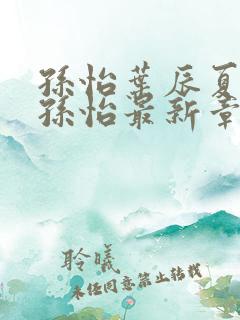 孫怡葉辰夏
孫怡最新章
聆曦
未經同意禁止轉載